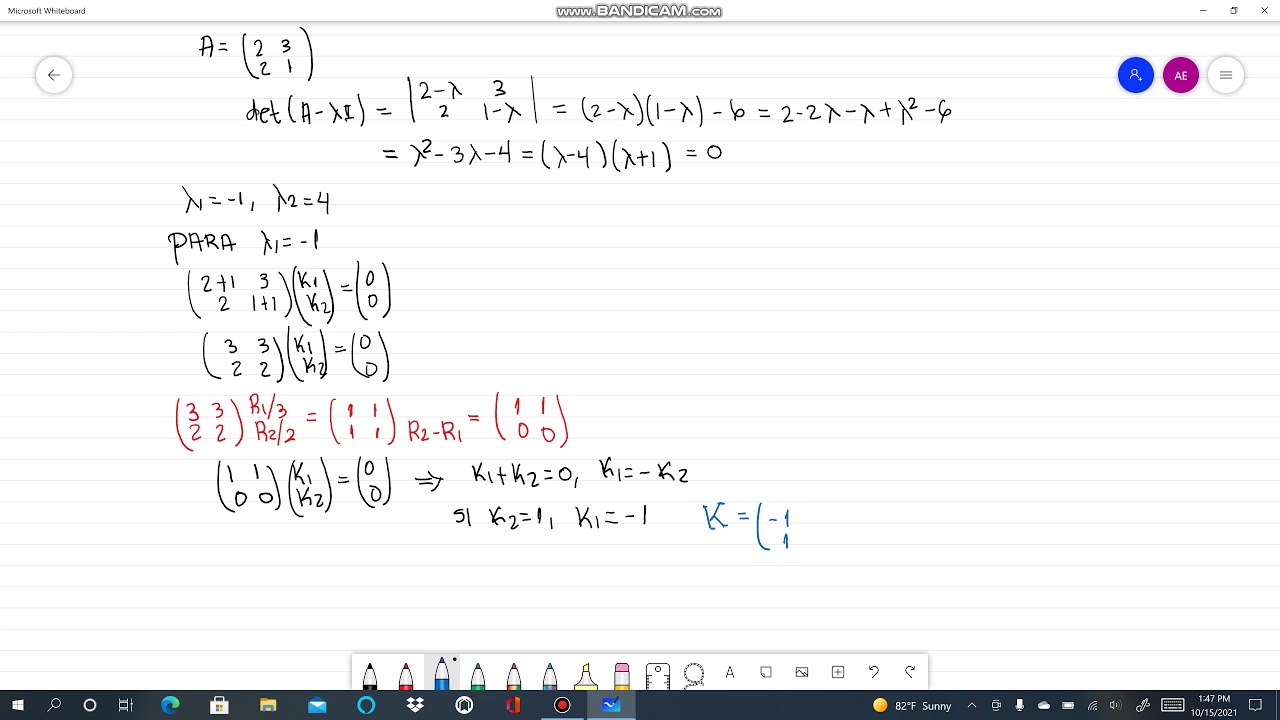 Microsoft Whiteboard
www.BANDICAM.com
AE
A = (2 3
2 1)
det(A-λI) = |2-λ 3
2 1-λ| = (2-λ)(1-λ) - 6 = 2-2λ-λ+λ²-6
= λ²-3λ-4 = (λ-4)(λ+1) = 0
λ1=-1, λ2=4
PARA λ1=-1
(2+1 3
2 1+1)(K1
K2) = (0
0)
(3 3
2 2)(K1
K2) = (0
0)
(3 3
2 2) R1/3
R2/2 = (1 1
1 1) R2-R1 = (1 1
0 0)
(1 1
0 0)(K1
K2) = (0
0) ⇒ K1+K2=0, K1=-K2
SI K2=1, K1=-1
K = (-1
1
A
88°F Sunny
1:47 PM
10/15/2021